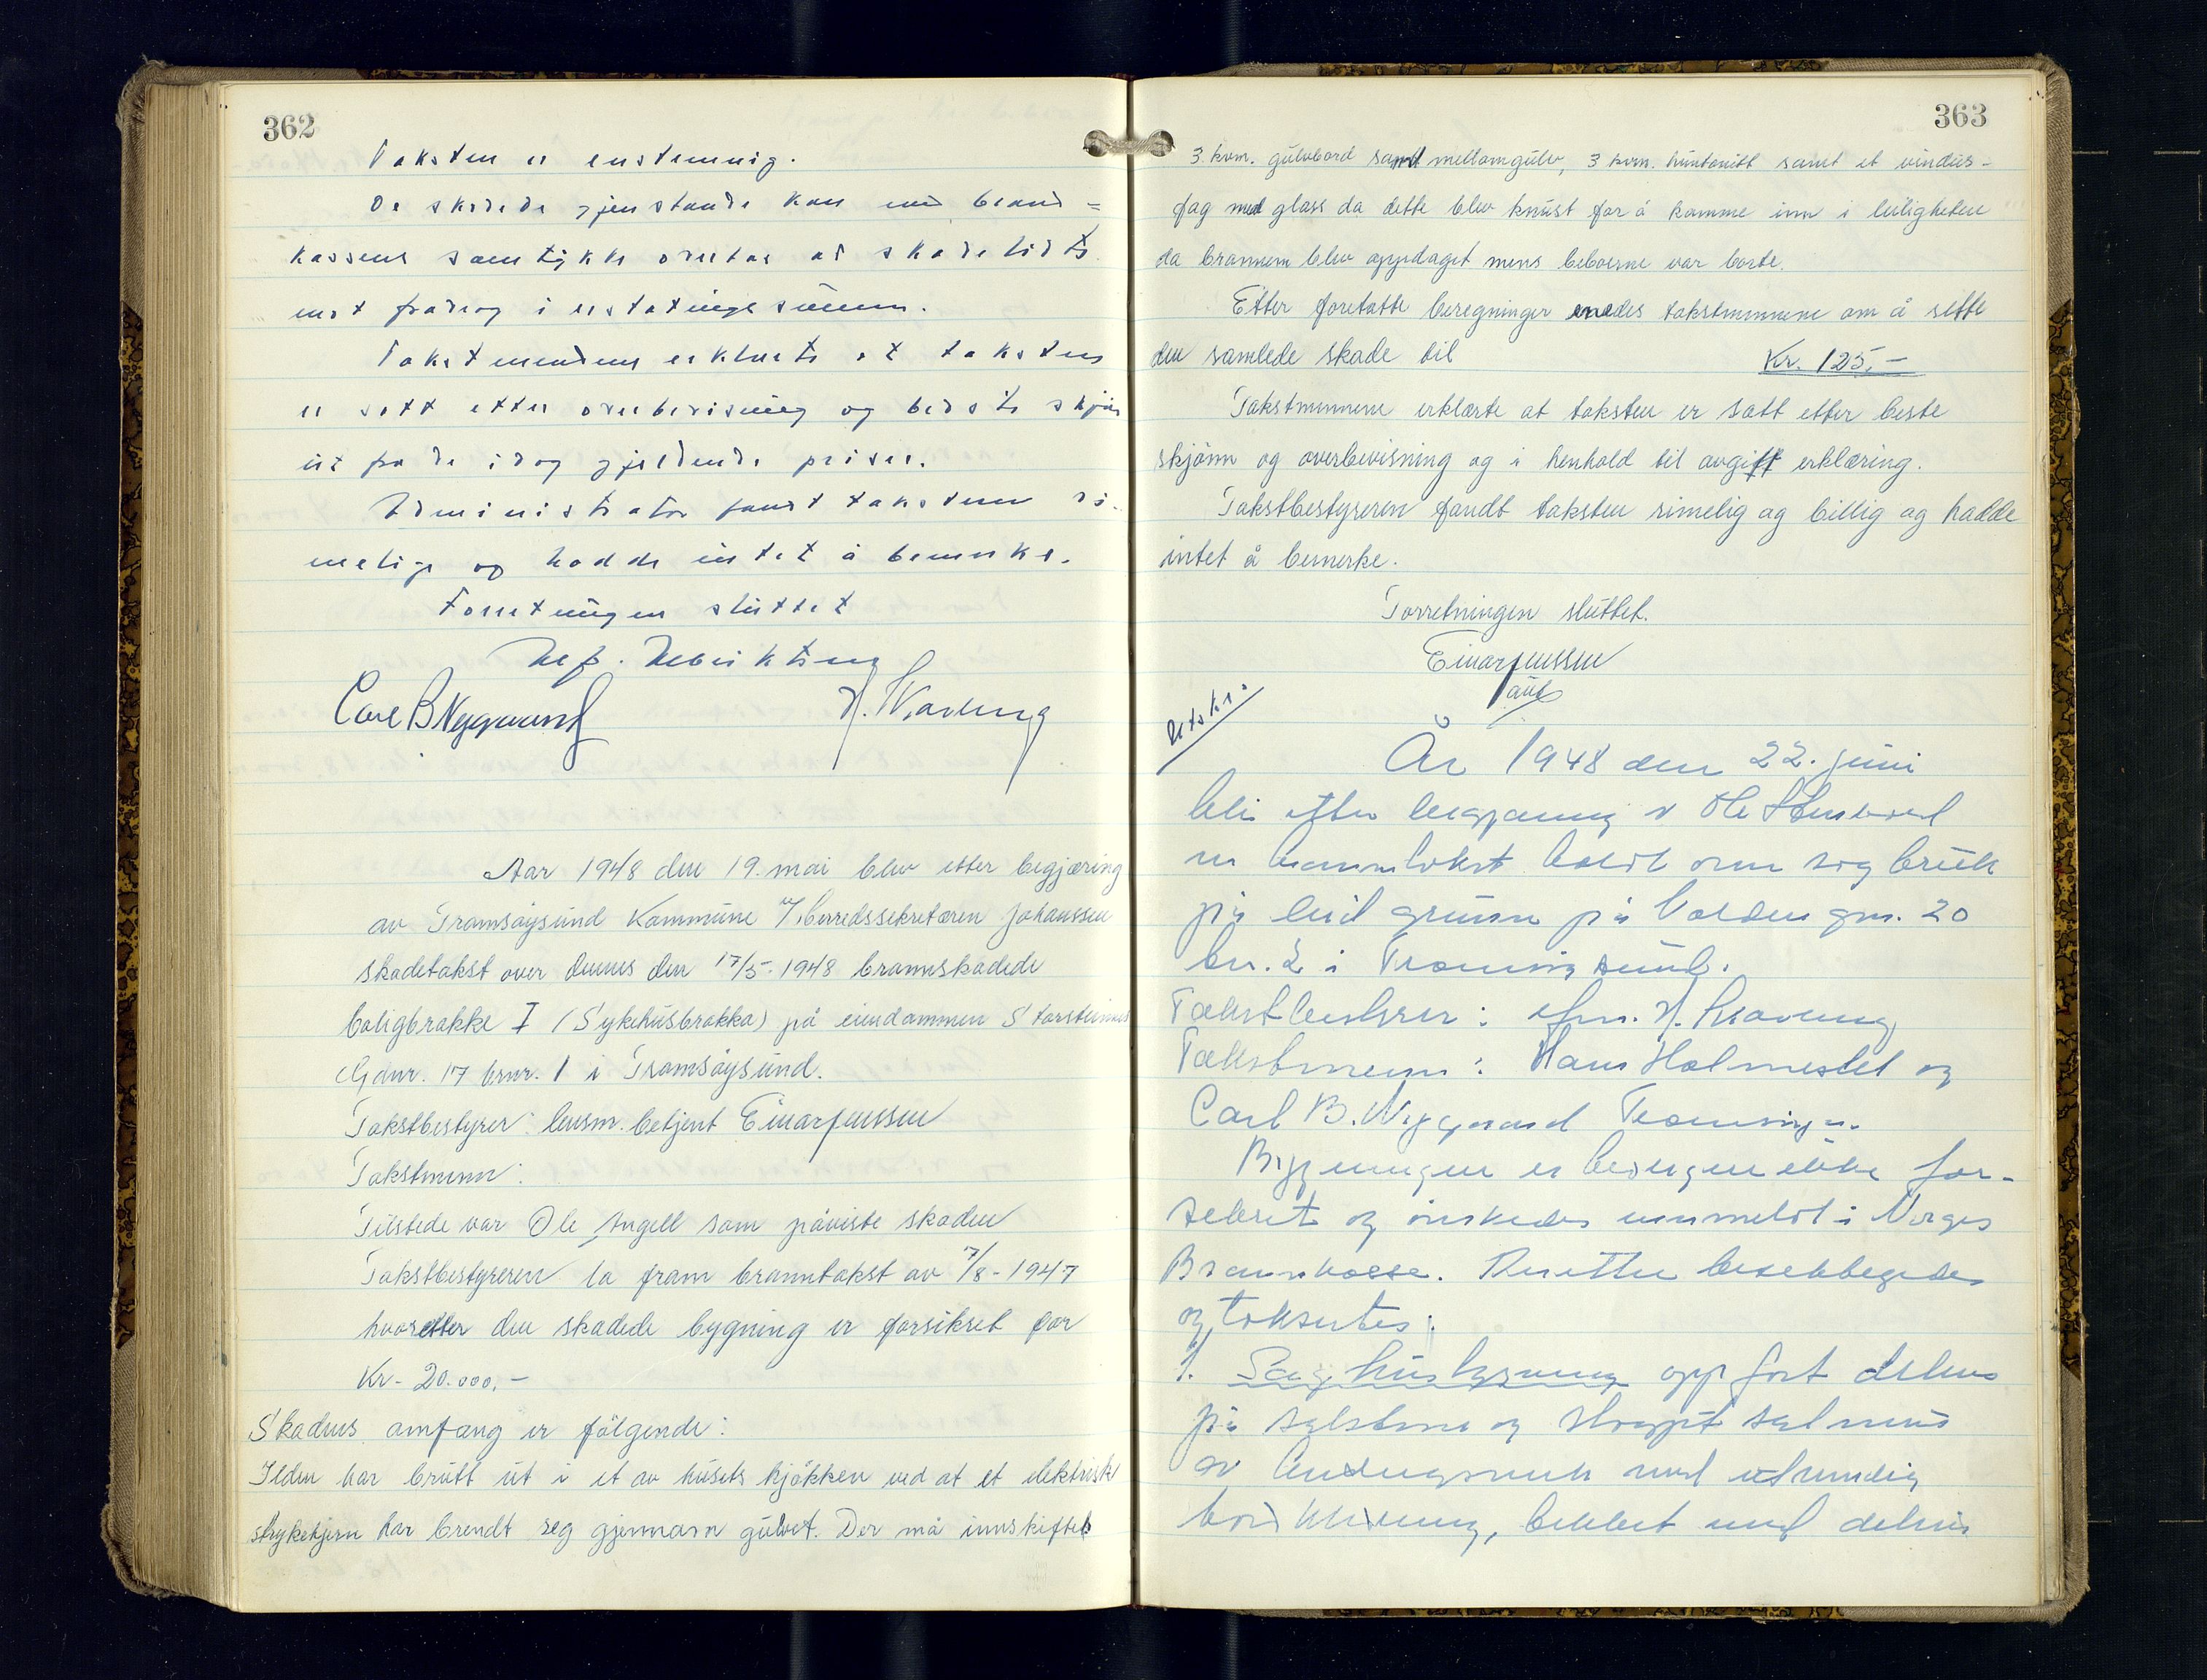 362
Taksten er enstemmig.
De skadede gjenstande kan med brand=
kassens samtykke overtas av skadelidte
mot fradrag i erstatingssummen.
Takstmendene erklærte at taksten
er satt etter overbevisning og bedste skjøn
ut fra de idag gjeldende priser.
Administrator fandt taksten ri-
melige og hadde intet å bemerke.
Forretningen sluttet
Carl B Nygaard
Aar 1948 den 19. mai blev etter begjæring
av Tromsöysund Kommune v/herredssekretæren Johanssen
skadetakst over dennes den 17/5-1948 branneskadede
boligbrakke I (Sykehusbrakka) på eiendommen Storsteinnes
Gdnr. 17 brnr. 1 i Tromsöysund.
Takstbestyrer: lensm. betjent Einar Jenssen
Takstmenn:
Tilstede var Ole Angell som påviste skaden
Takstbestyreren la fram branntakst av 7/8-1947
hvoretter den skadede bygning er forsikret for
Kr. 20.000,-
Skadens omfang er fölgende:
Ilden har brutt ut i et av husets kjökken ved at et elektrisk
strykejern har brendt seg gjennom gulvet. Der må innskiftes
363
3 kvm. gulvbord samt mellomgulv, 3 kvm. huntonitt samt et vindus-
fag med glass da dette blev knust for å komme inn i leiligheten
da brannen blev oppdaget mens beboerne var borte.
Etter foretatte beregninger enedes takstmennene om å sette
den samlede skade til Kr. 125,-
Takstmennene erklærte at taksten er satt etter beste
skjönn og overbevisning og i henhold til avgitt erklæring.
Takstbestyreren fandt taksten rimelig og billig og hadde
intet å bemerke.
Forretningen sluttet.
Einar Jenssen
aut
Utskr.
År 1948 den 22. juni
blei etter begjæring av Ole
en branntakst holdt over sag bruk
på leid grunn på gnr. 20
bnr. 2 i Tromsöysund.
Takstbestyrer: lfm. H.
Takstmenn: Hans Holmeslet og
Carl B. Nygaard Tromsöys.
Bygningen er tidligere ikke for-
sikret og önskedes innmeldt i Norges
Brannkasse. Deretter besiktigedes
og taksertes:
1. Saghusbygning oppfört delvis
på og
av bindingsverk med utvendig
bordkledning, tekket med delvis